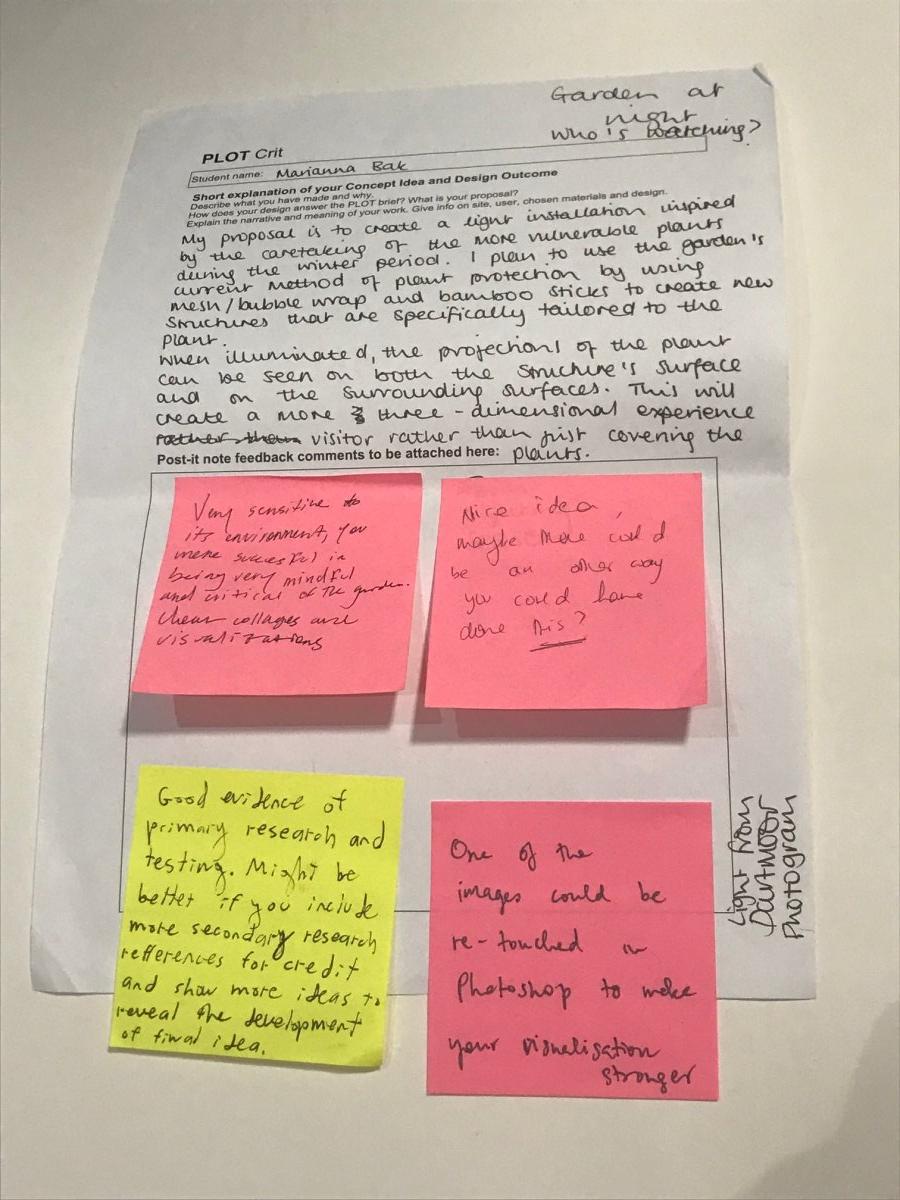 Garden at
night
Who's watching?
PLOT Crit
Student name: Marianna Bak
Short explanation of your Concept Idea and Design Outcome
Describe what you have made and why.
How does your design answer the PLOT brief? What is your proposal?
Explain the narrative and meaning of your work. Give info on site, user, chosen materials and design.
My proposal is to create a light installation inspired
by the caretaking of the more vulnerable plants
during the winter period. I plan to use the garden's
current method of plant protection by using
mesh/bubble wrap and bamboo sticks to create new
structures that are specifically tailored to the
plant.
When illuminated, the projections of the plant
can be seen on both the structure's surface
and on the surrounding surfaces. This will
create a more three-dimensional experience
rather than visitor rather than just covering the
Post-it note feedback comments to be attached here: plants.
Very sensitive to
its environment, you
were succesful in
being very mindful
and critical of the garden.
Clear collages and
visualizations
Nice idea,
maybe there could
be an other way
you could have
done this?
Good evidence of
primary research and
testing. Might be
better if you include
more secondary research
refferences for credit
and show more ideas to
reveal the development
of final idea.
One of the
images could be
re-touched in
Photoshop to make
your visualisation
stronger
Light from
Dartmoor
Photogram